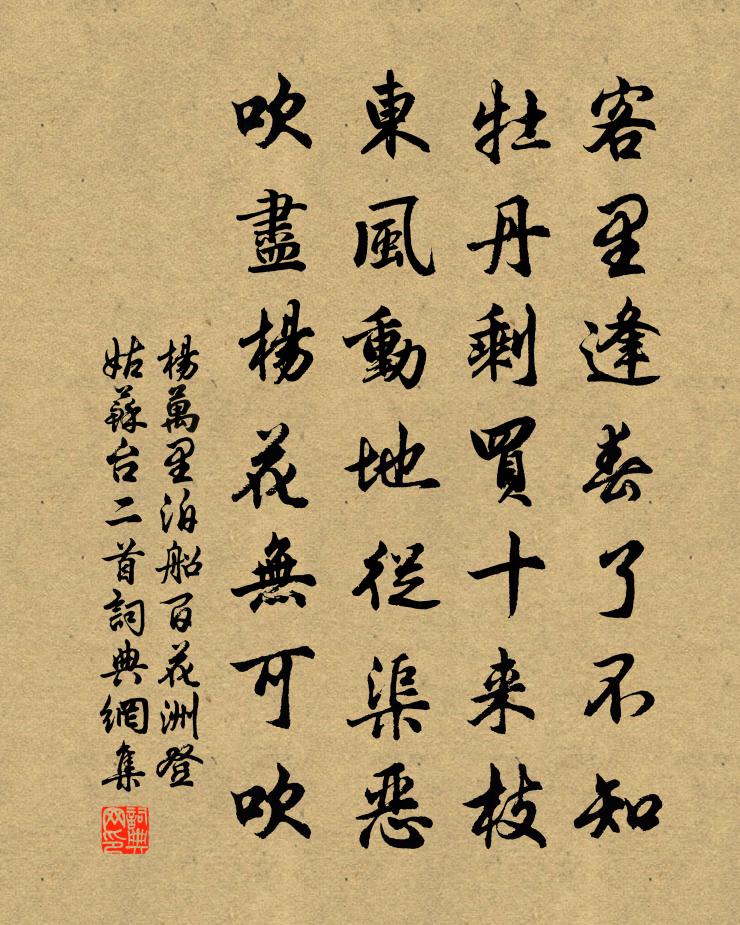 客里逢春了不知
牡丹剩買十来枝
東風動地從渠惡
吹盡楊花無可吹
楊萬里泊船百花洲登
姑蘇台二首詞典網集
詞典网印